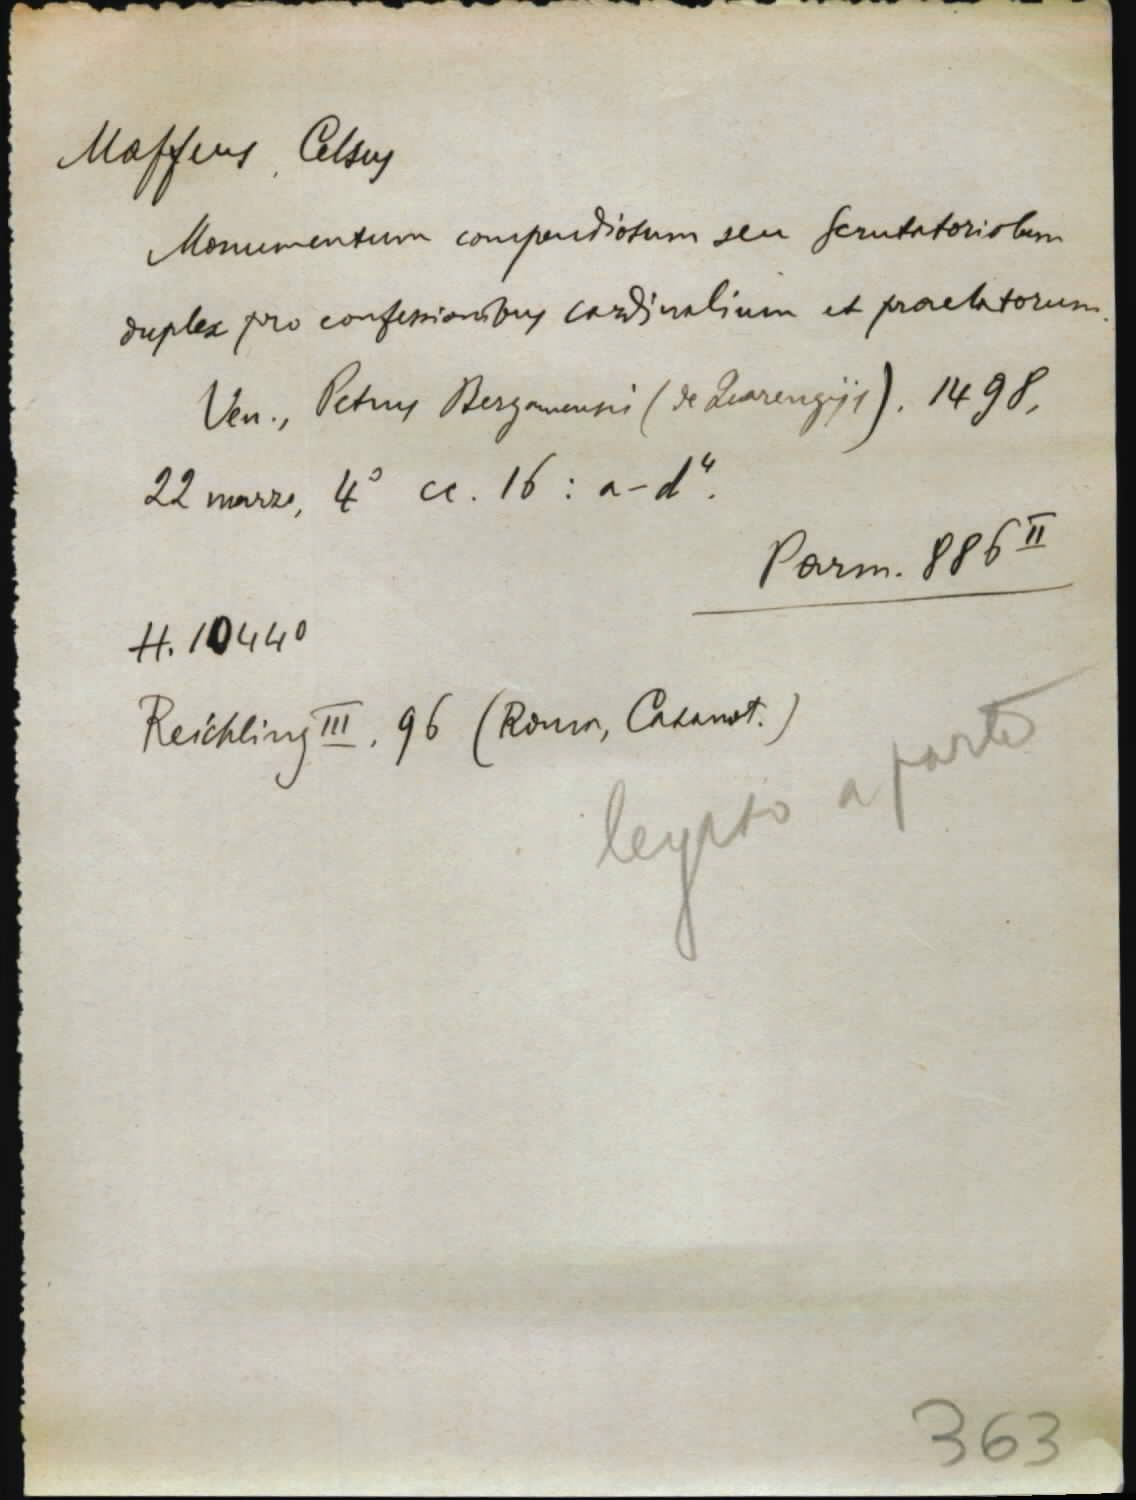 Maffeus, Celsus
Monumentum compendiosum seu Scrutatoriolum
duplex pro confessionibus cardinalium et praelatorum.
Ven., Petrus Bergomensis (de Quarengijs). 1498,
22 marzo, 4° cc. 16 : a-d⁴.
Parm. 886 II
H. 10440
Reichling III, 96 (Roma, Casanat.)
a parte
363